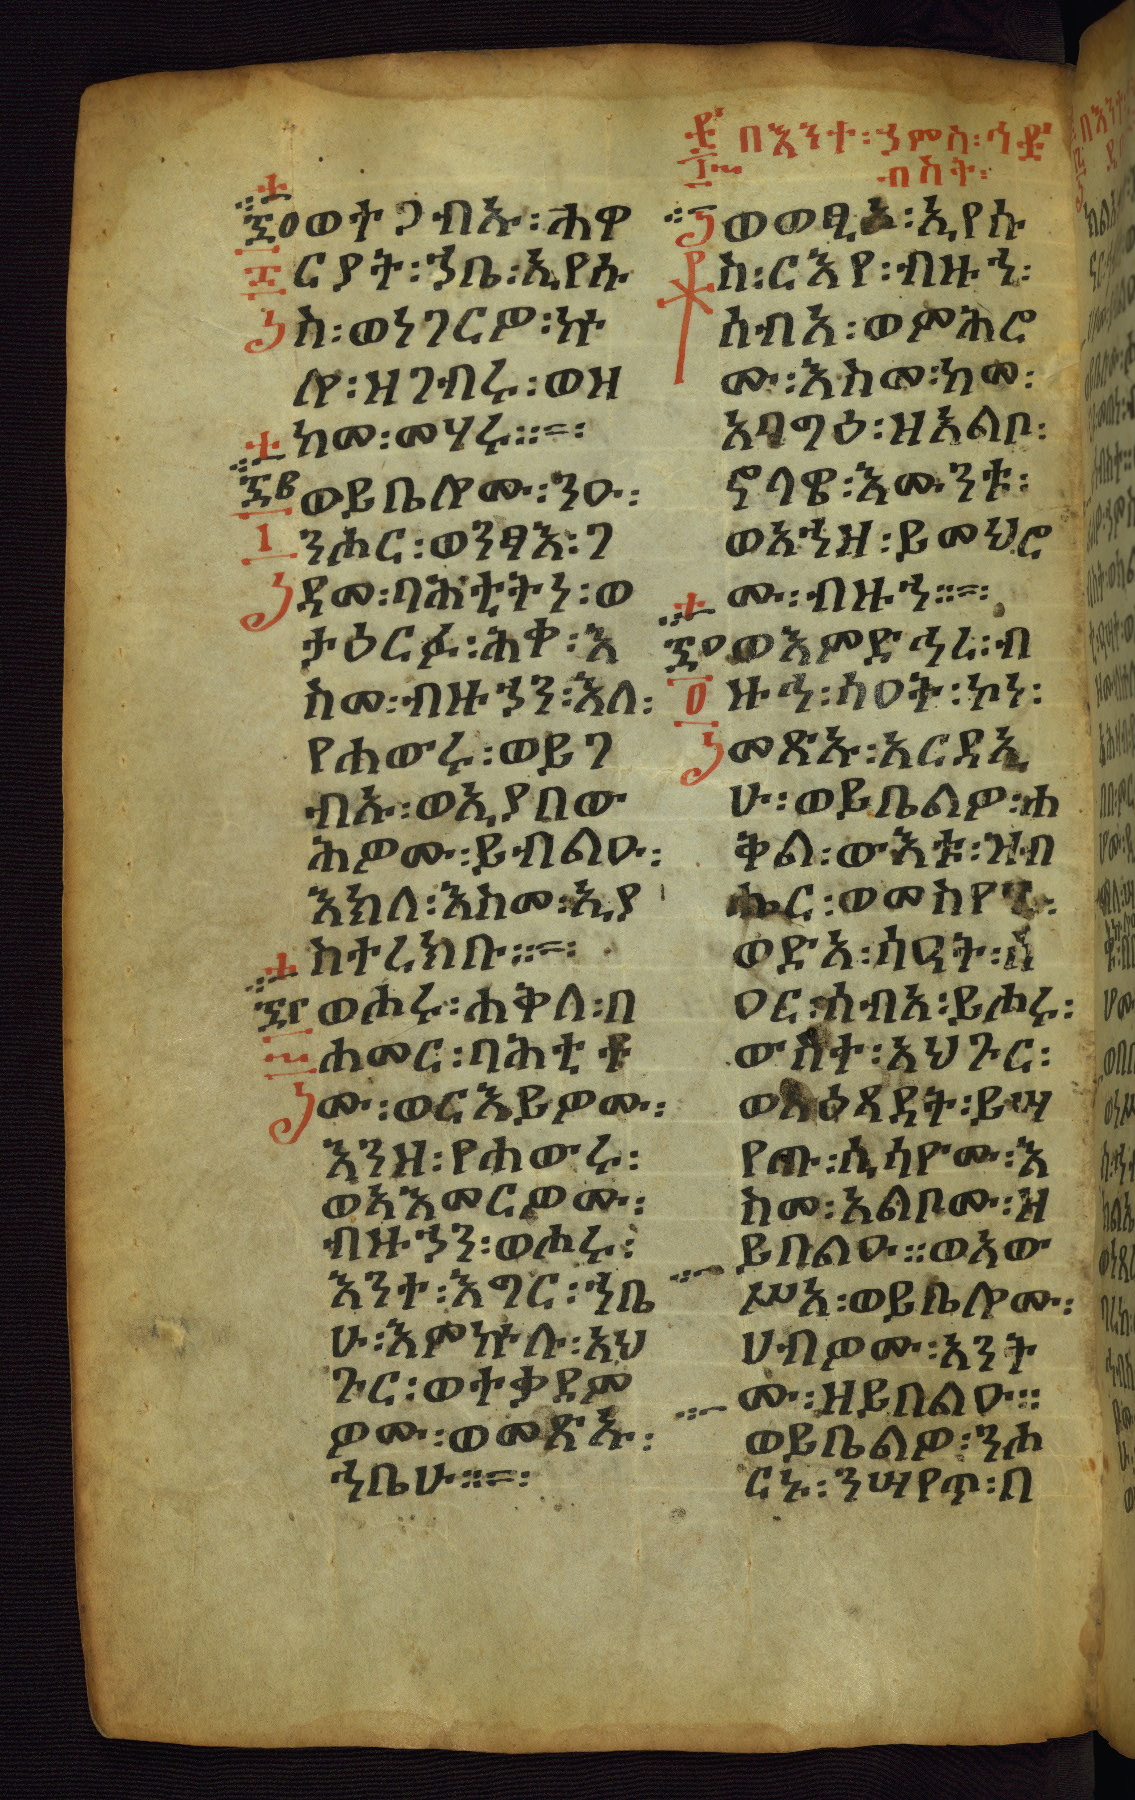 በእንተ፡ኃምስ፡ኅ
ብስት፡
ወተጋብኡ፡ሐዋ
ርያት፡ኀቤ፡ኢየሱ
ስ፡ወነገርዎ፡ኵ
ሎ፡ዘገብሩ፡ወዘ
ከመ፡መሃሩ።
ወይቤሎሙ፡ንዑ፡
ንሑር፡ወንፃእ፡ገ
ዳመ፡ባሕቲትነ፡ወ
ታዕርፉ፡ሕቀ፡እ
ስመ፡ብዙኃን፡እለ፡
የሐውሩ፡ወይገ
ብኡ፡ወኢያበው
ሕዎሙ፡ይብልዑ፡
እክለ፡እስመ፡ኢያ
ስተረክቡ።
ወሖሩ፡ሐቅለ፡በ
ሐመር፡ባሕቲቶ
ሙ፡ወርእይዎሙ፡
እንዘ፡የሐውሩ፡
ወአእመርዎሙ፡
ብዙኃን፡ወሖሩ፡
እንተ፡እግር፡ኀቤ
ሁ፡እምኵሉ፡አህ
ጉር፡ወተቃደም
ዎሙ፡ወመጽኡ፡
ኀቤሁ።
ወወፂኦ፡ኢየሱ
ስ፡ርእየ፡ብዙኀ፡
ሰብአ፡ወምሕሮ
ሙ፡እስመ፡ከመ፡
አባግዕ፡ዘአልቦ፡
ኖላዌ፡እሙንቱ፡
ወአኀዘ፡ይመህሮ
ሙ፡ብዙኀ።
ወእምድኅረ፡ብ
ዙኅ፡ሰዐት፡ኮነ፡
መጽኡ፡አርዳኢ
ሁ፡ወይቤልዎ፡ሐ
ቅል፡ውእቱ፡ዝብ
ሔር፡ወመስየ፡
ወድአ፡ሰዓት፡
ዐር፡ሰብአ፡ይሖሩ፡
ውስተ፡አህጉር፡
ወአዕጻዳት፡ይሣ
የጡ፡ሲሳዮሙ፡እ
ስመ፡አልቦሙ፡ዘ
ይበልዑ።ወአው
ሥአ፡ወይቤሎሙ፡
ሀብዎሙ፡አንት
ሙ፡ዘይበልዑ።
ወይቤልዎ፡ንሑ
ርኑ፡ንሣየጥ፡በ